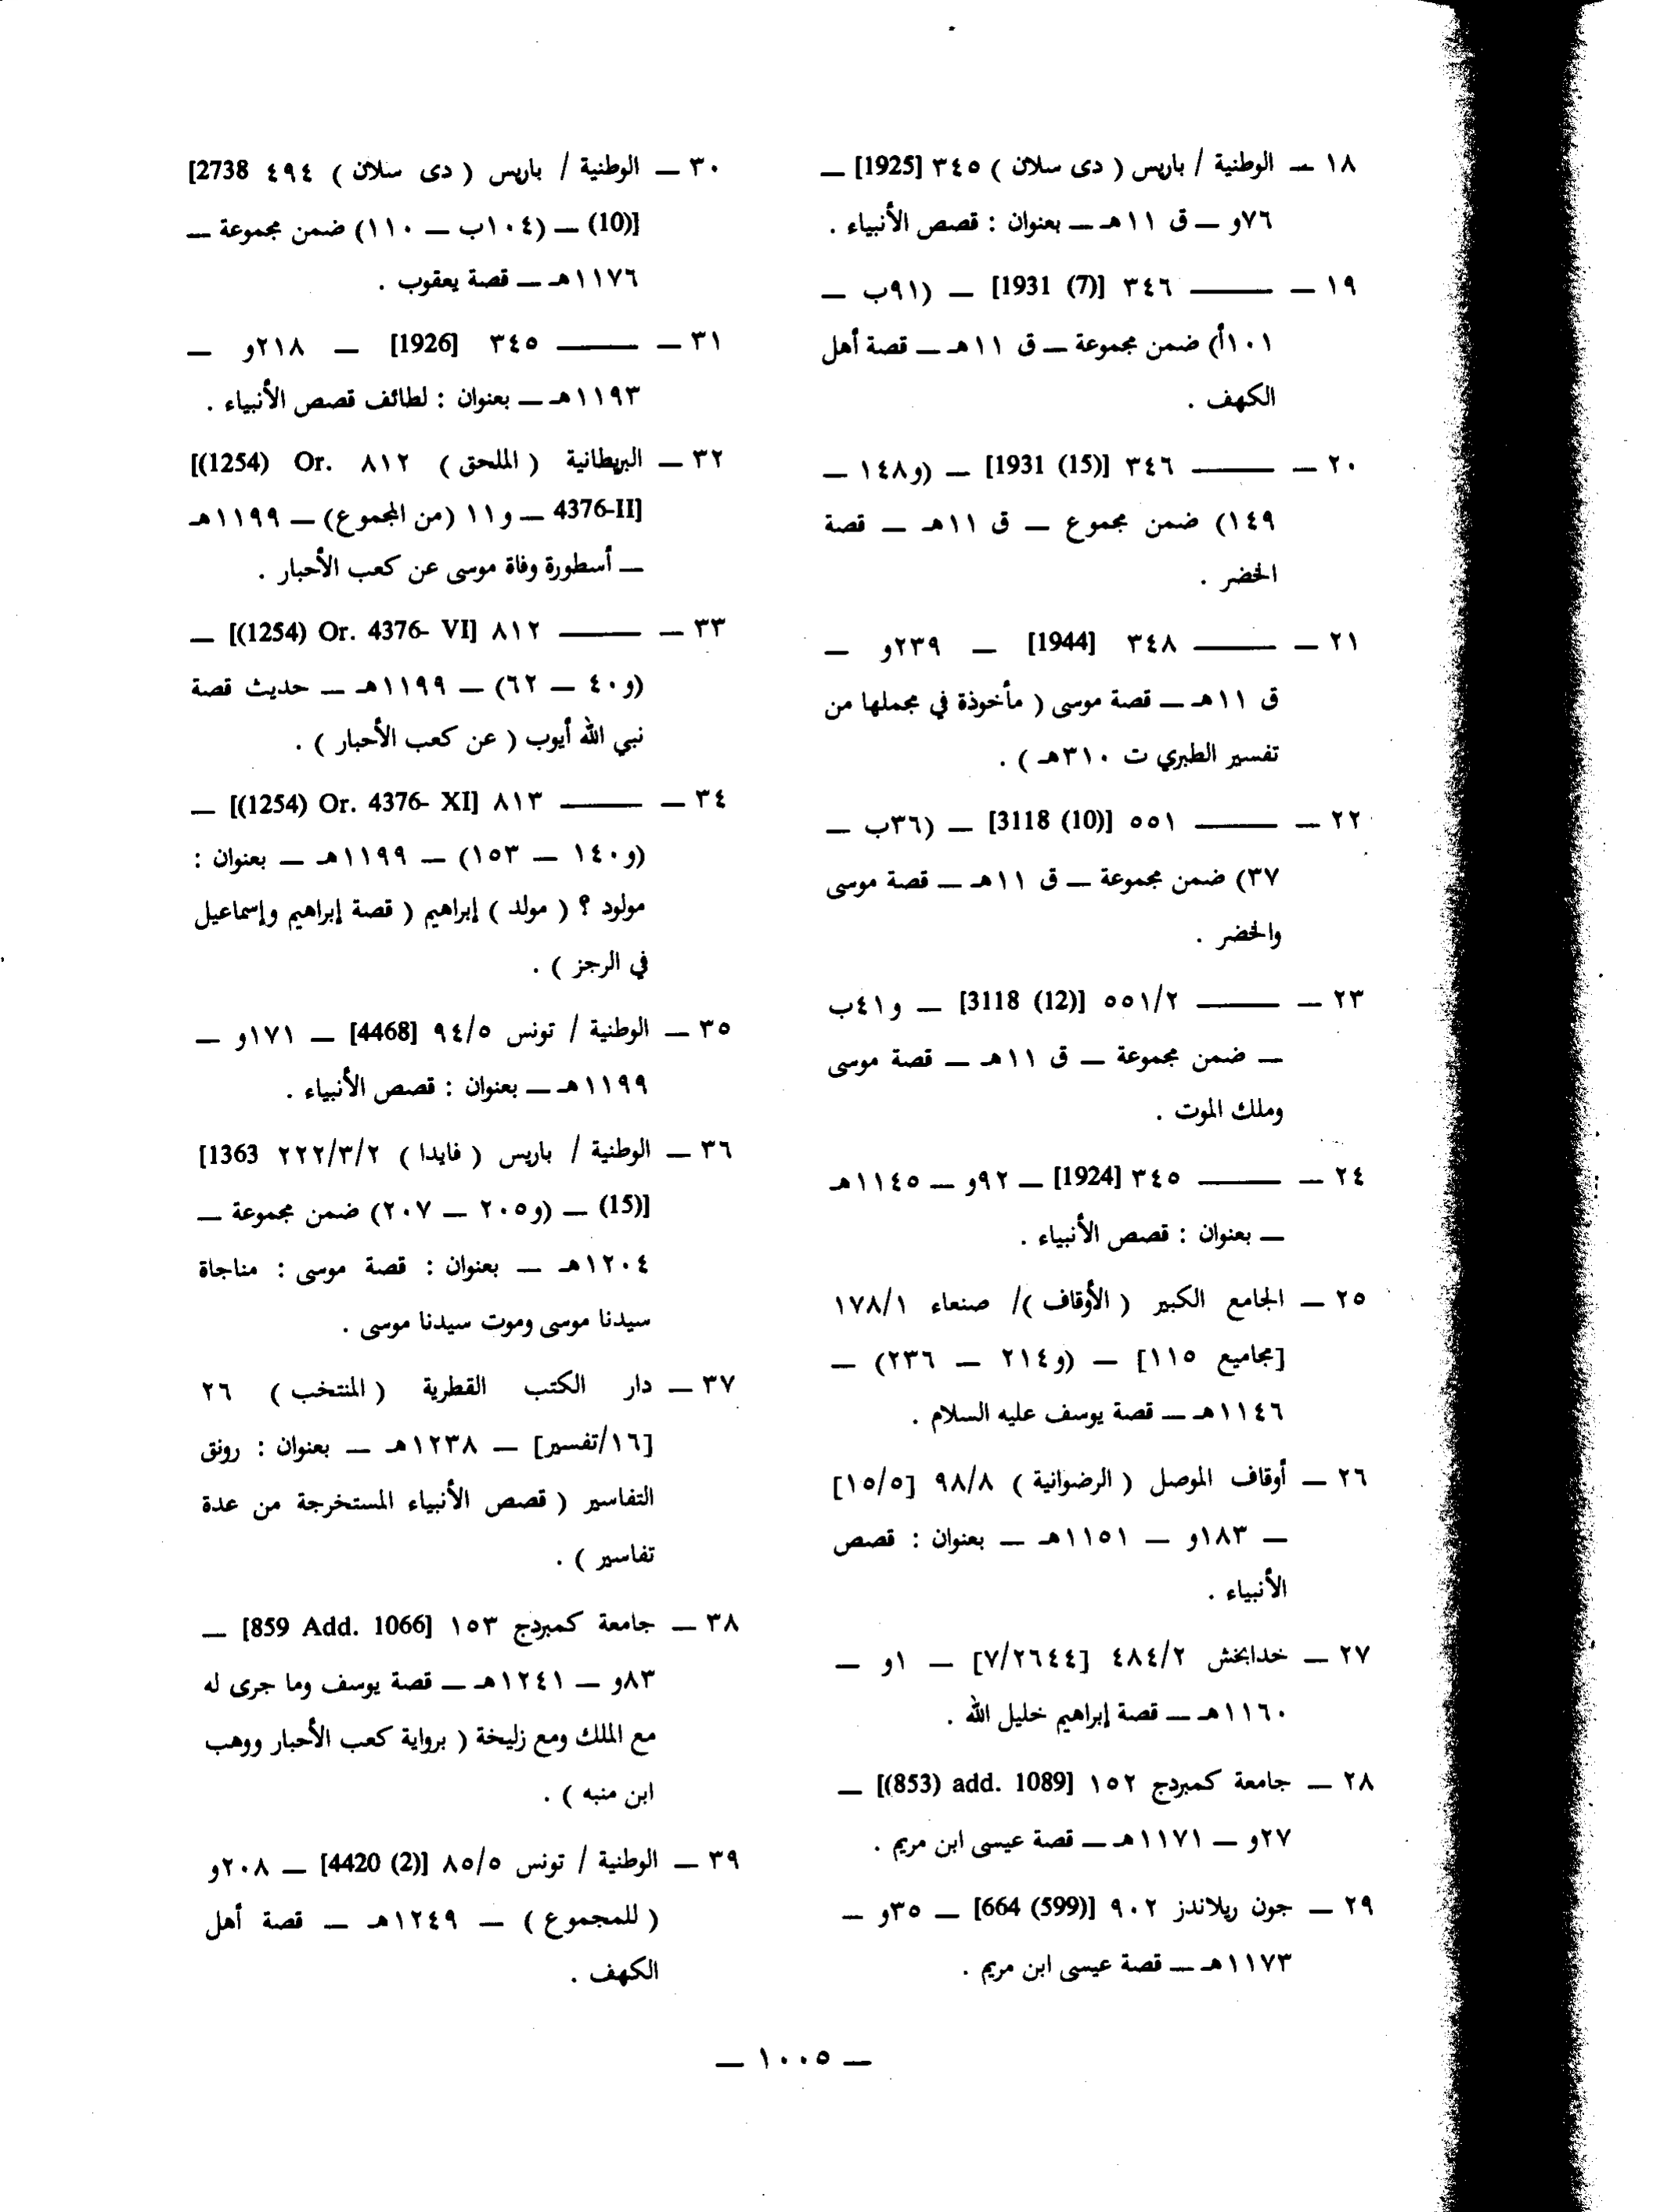 ١٨ — الوطنية / باريس ( دى سلان ) ٣٤٥ [1925] —
٧٦و — ق ١١هـ — بعنوان : قصص الأنبياء .
١٩ — ——— ٣٤٦ [1931 (7)] — (٩١ب —
١٠١أ) ضمن مجموعة — ق ١١هـ — قصة أهل
الكهف .
٢٠ — ——— ٣٤٦ [1931 (15)] — (و١٤٨ —
١٤٩) ضمن مجموع — ق ١١هـ — قصة
الخضر .
٢١ — ——— ٣٤٨ [1944] — ٢٣٩و —
ق ١١هـ — قصة موسى ( مأخوذة في مجملها من
تفسير الطبري ت ٣١٠هـ ) .
٢٢ — ——— ٥٥١ [3118 (10)] — (٣٦ب —
٣٧) ضمن مجموعة — ق ١١هـ — قصة موسى
والخضر .
٢٣ — ——— ٥٥١/٢ [3118 (12)] — و٤١ب
— ضمن مجموعة — ق ١١هـ — قصة موسى
وملك الموت .
٢٤ — ——— ٣٤٥ [1924] — ٩٢و — ١١٤٥هـ
— بعنوان : قصص الأنبياء .
٢٥ — الجامع الكبير ( الأوقاف )/ صنعاء ١٧٨/١
[مجاميع ١١٥] — (و٢١٤ — ٢٣٦) —
١١٤٦هـ — قصة يوسف عليه السلام .
٢٦ — أوقاف الموصل ( الرضوانية ) ٩٨/٨ [١٥/٥]
— ١٨٣و — ١١٥١هـ — بعنوان : قصص
الأنبياء .
٢٧ — خدابخش ٤٨٤/٢ [٧/٢٦٤٤] — ١و —
١١٦٠هـ — قصة إبراهيم خليل الله .
٢٨ — جامعة كمبردج ١٥٢ [(853) add. 1089] —
٢٧و — ١١٧١هـ — قصة عيسى ابن مريم .
٢٩ — جون ريلاندز ٩٠٢ [664 (599)] — ٣٥و —
١١٧٣هـ — قصة عيسى ابن مريم .
٣٠ — الوطنية / باريس ( دى سلان ) ٤٩٤ [2738
(10)] — (١٠٤ب — ١١٠) ضمن مجموعة —
١١٧٦هـ — قصة يعقوب .
٣١ — ——— ٣٤٥ [1926] — ٢١٨و —
١١٩٣هـ — بعنوان : لطائف قصص الأنبياء .
٣٢ — البريطانية ( الملحق ) ٨١٢ [(1254) Or.
4376-II] — و١١ (من المجموع) — ١١٩٩هـ
— أسطورة وفاة موسى عن كعب الأحبار .
٣٣ — ——— ٨١٢ [(1254) Or. 4376- VI] —
(و٤٠ — ٦٢) — ١١٩٩هـ — حديث قصة
نبي الله أيوب ( عن كعب الأحبار ) .
٣٤ — ——— ٨١٣ [(1254) Or. 4376- XI] —
(و١٤٠ — ١٥٣) — ١١٩٩هـ — بعنوان :
مولود ؟ ( مولد ) إبراهيم ( قصة إبراهيم وإسماعيل
في الرجز ) .
٣٥ — الوطنية / تونس ٩٤/٥ [4468] — ١٧١و —
١١٩٩هـ — بعنوان : قصص الأنبياء .
٣٦ — الوطنية / باريس ( فايدا ) ٢٢٢/٣/٢ [1363
(15)] — (و٢٠٥ — ٢٠٧) ضمن مجموعة —
١٢٠٤هـ — بعنوان : قصة موسى : مناجاة
سيدنا موسى وموت سيدنا موسى .
٣٧ — دار الكتب القطرية ( المنتخب ) ٢٦
[١٦/تفسير] — ١٢٣٨هـ — بعنوان : رونق
التفاسير ( قصص الأنبياء المستخرجة من عدة
تفاسير ) .
٣٨ — جامعة كمبردج ١٥٣ [859 Add. 1066] —
٨٣و — ١٢٤١هـ — قصة يوسف وما جرى له
مع الملك ومع زليخة ( برواية كعب الأحبار ووهب
ابن منبه ) .
٣٩ — الوطنية / تونس ٨٥/٥ [4420 (2)] — ٢٠٨و
( للمجموع ) — ١٢٤٩هـ — قصة أهل
الكهف .
— ١٠٠٥ —